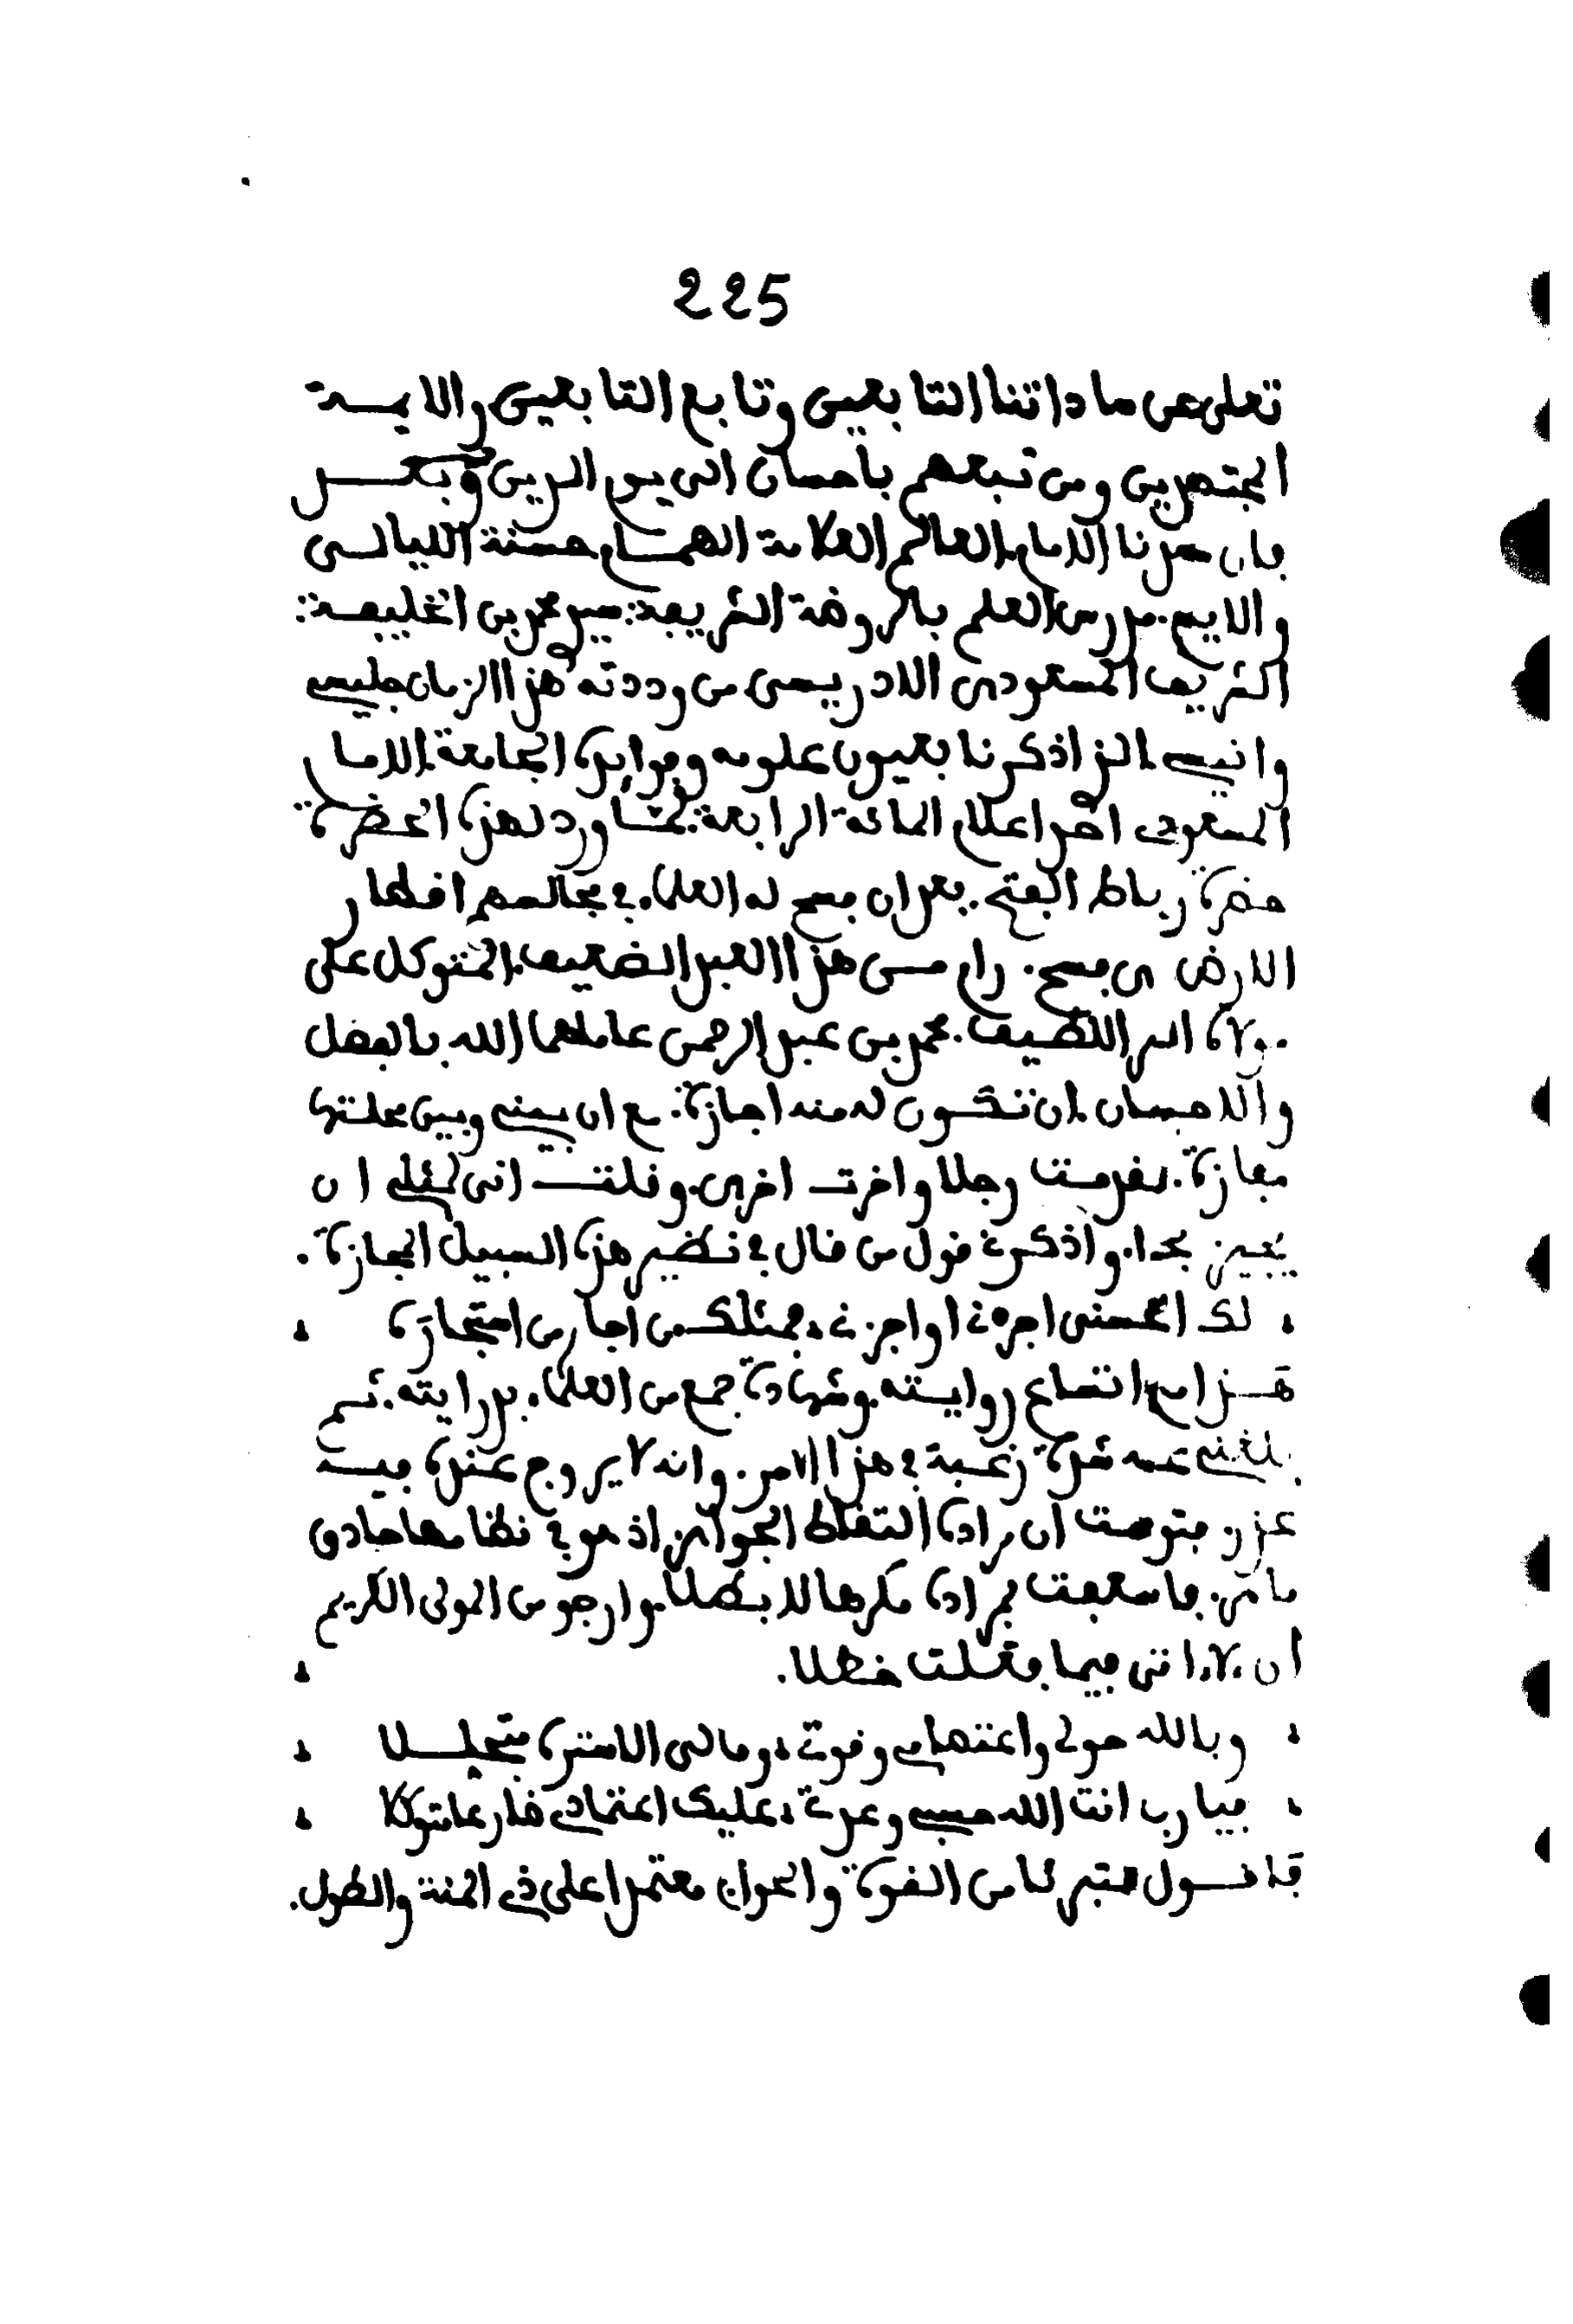 225
تعلى عن ساداتنا التابعين وتابع التابعين والايمة
المجتهدين ومن تبعهم باحسان الى يوم الدين وبعد
فان عزنا الامام العالم العلامة الهمام حسنة الليالي
والايام مدرس العلم بالروضة الشريفة سيد محمد بن الخليفة
الشريف المسعودي الادريسي من وددته هذا الزمان جليسي
وانيسي الذ اذكرنا بعيون علومه وفوايده الجامعة الامام
المسعودي احد اعلام المائة الرابعة لما ورد لهذه الحضرة
حضرة رباط الفتح بعد ان فسح له العلماء في مجالسهم اقطار
الارض فسح رام من هذا العبد الضعيف المتوكل على
مولاه البر اللطيف محمد بن عبد الرحمن عاملهما الله بالفضل
والاحسان ان تكون له منه اجازة مع ان بيني وبين محلتها
مفازة فقدمت رجلا واخرت اخرى وقلت انى لمثلي ان
يجيز بحدا واذكرت قول من قال في نظير هذه السبيل المجازة
لك الحسنى اجزت او اجزت فمثلك من اجاز من استجازه
هذا مع اتساع روايته وشهادة جمع من العلماء بدرايته ثم
بلغني عنه شدة رغبة في هذا الامر وانه لا يروج عنده فيه
عذر فتوهمت ان مراده التقاط الجواهر اذ هو في نظامها حاذق
ماهر فاسعفت مراده مكرها لا بطلا وارجو من المولى الكريم
ان لا اتى فيما فعلت خطلا
وبالله حولي واعتصامي وقوتي وما لى الا ستره متجللا
فيا رب انت الله حسبي وعدتي عليك اعتمادي ضارعا متوكلا
فاقول متبرئا من القوة والحول معتمدا على ذي المنة والطول